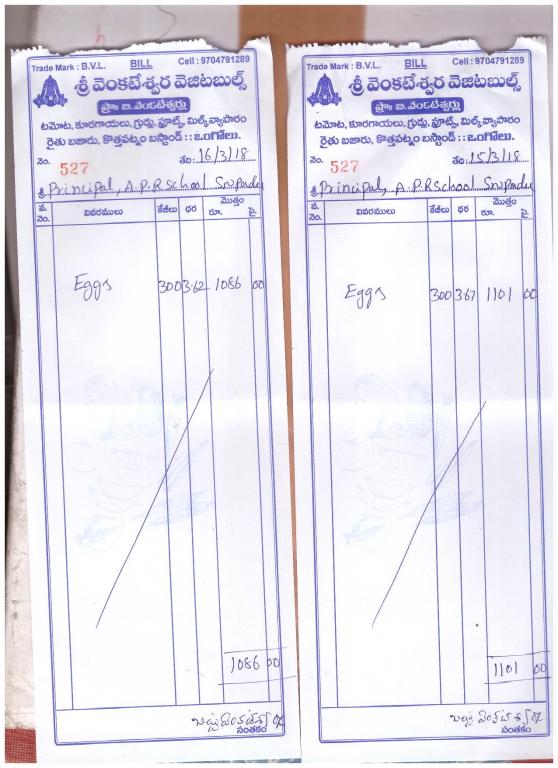 Trade Mark : B.V.L. BILL Cell : 9704791289
శ్రీ వెంకటేశ్వర వెజిటబుల్స్
ప్రొః బి. వెంకటేశ్వర్లు
టమోట, కూరగాయలు, గ్రుడ్లు, ఫ్రూట్స్, మిల్క్ వ్యాపారం
రైతు బజారు, కొత్తపట్నం బస్టాండ్ : : ఒంగోలు.
నెం. 527 తేది: 16/3/18
శ్రీ Principal, A.P.R School Snpadu
వ. నెం. వివరములు కేజీలు ధర మొత్తం రూ. పై.
Eggs 300 3.62 1086 00
1086 00
సంతకం
Trade Mark : B.V.L. BILL Cell : 9704791289
శ్రీ వెంకటేశ్వర వెజిటబుల్స్
ప్రొః బి. వెంకటేశ్వర్లు
టమోట, కూరగాయలు, గ్రుడ్లు, ఫ్రూట్స్, మిల్క్ వ్యాపారం
రైతు బజారు, కొత్తపట్నం బస్టాండ్ : : ఒంగోలు.
నెం. 527 తేది: 15/3/18
శ్రీ Principal, A.P.R School Snpadu
వ. నెం. వివరములు కేజీలు ధర మొత్తం రూ. పై.
Eggs 300 3.67 1101 00
1101 00
సంతకం